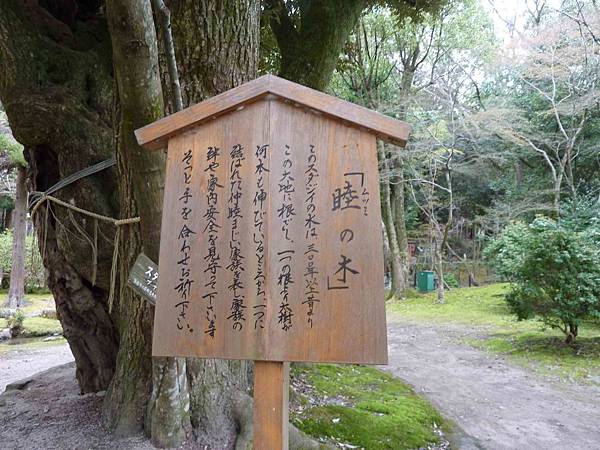 「睦の木」
むつみ
このスダジイの木は三〇〇年以上昔より
この大地に根ざし、一つの根より大樹が
何本も伸びているところから、一つに
結ばれた仲睦まじい家族を表し、家族の
絆や家内安全を見守って下さいます
そっと手を合わせお祈り下さい。
スダ